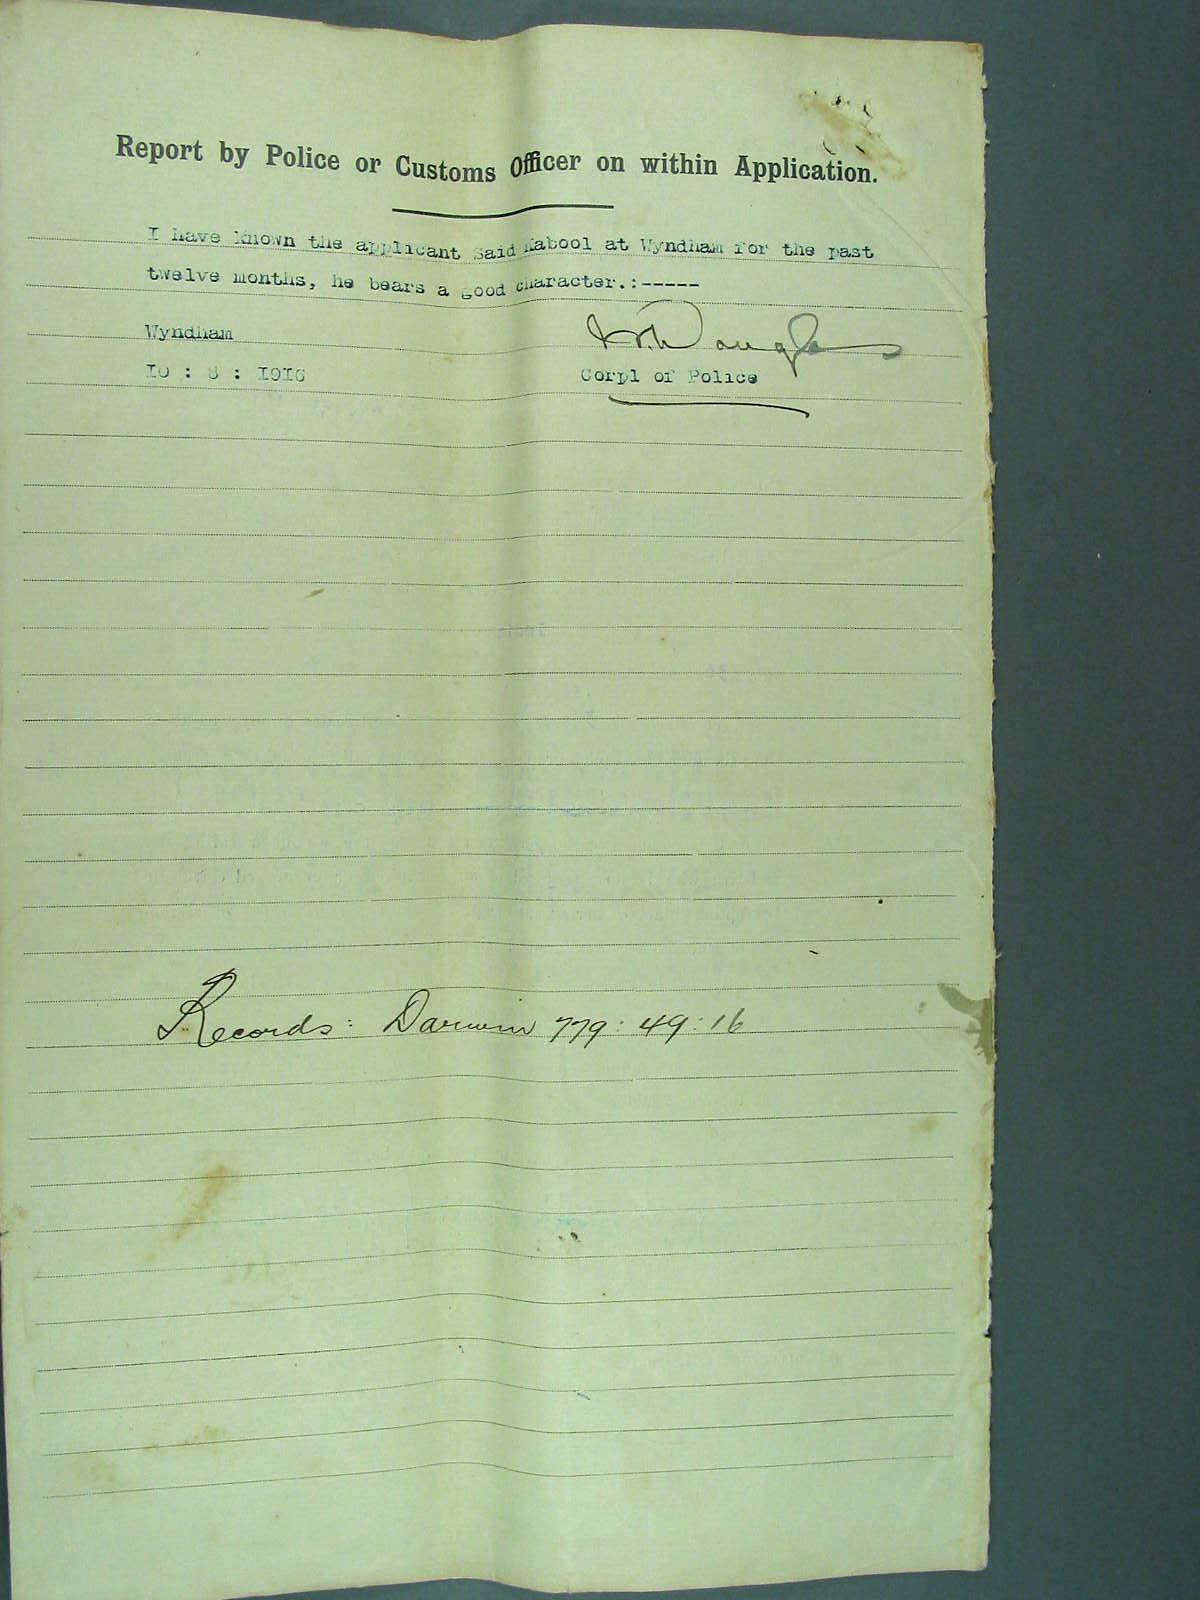 Report by Police or Customs Officer on within Application.
I have known the applicant Said Kabool at Wyndham for the past
twelve months, he bears a good character.:-----
Wyndham
Douglas
10 : 8 : 1916
Corpl of Police
Records: Darwin 779: 49: 16